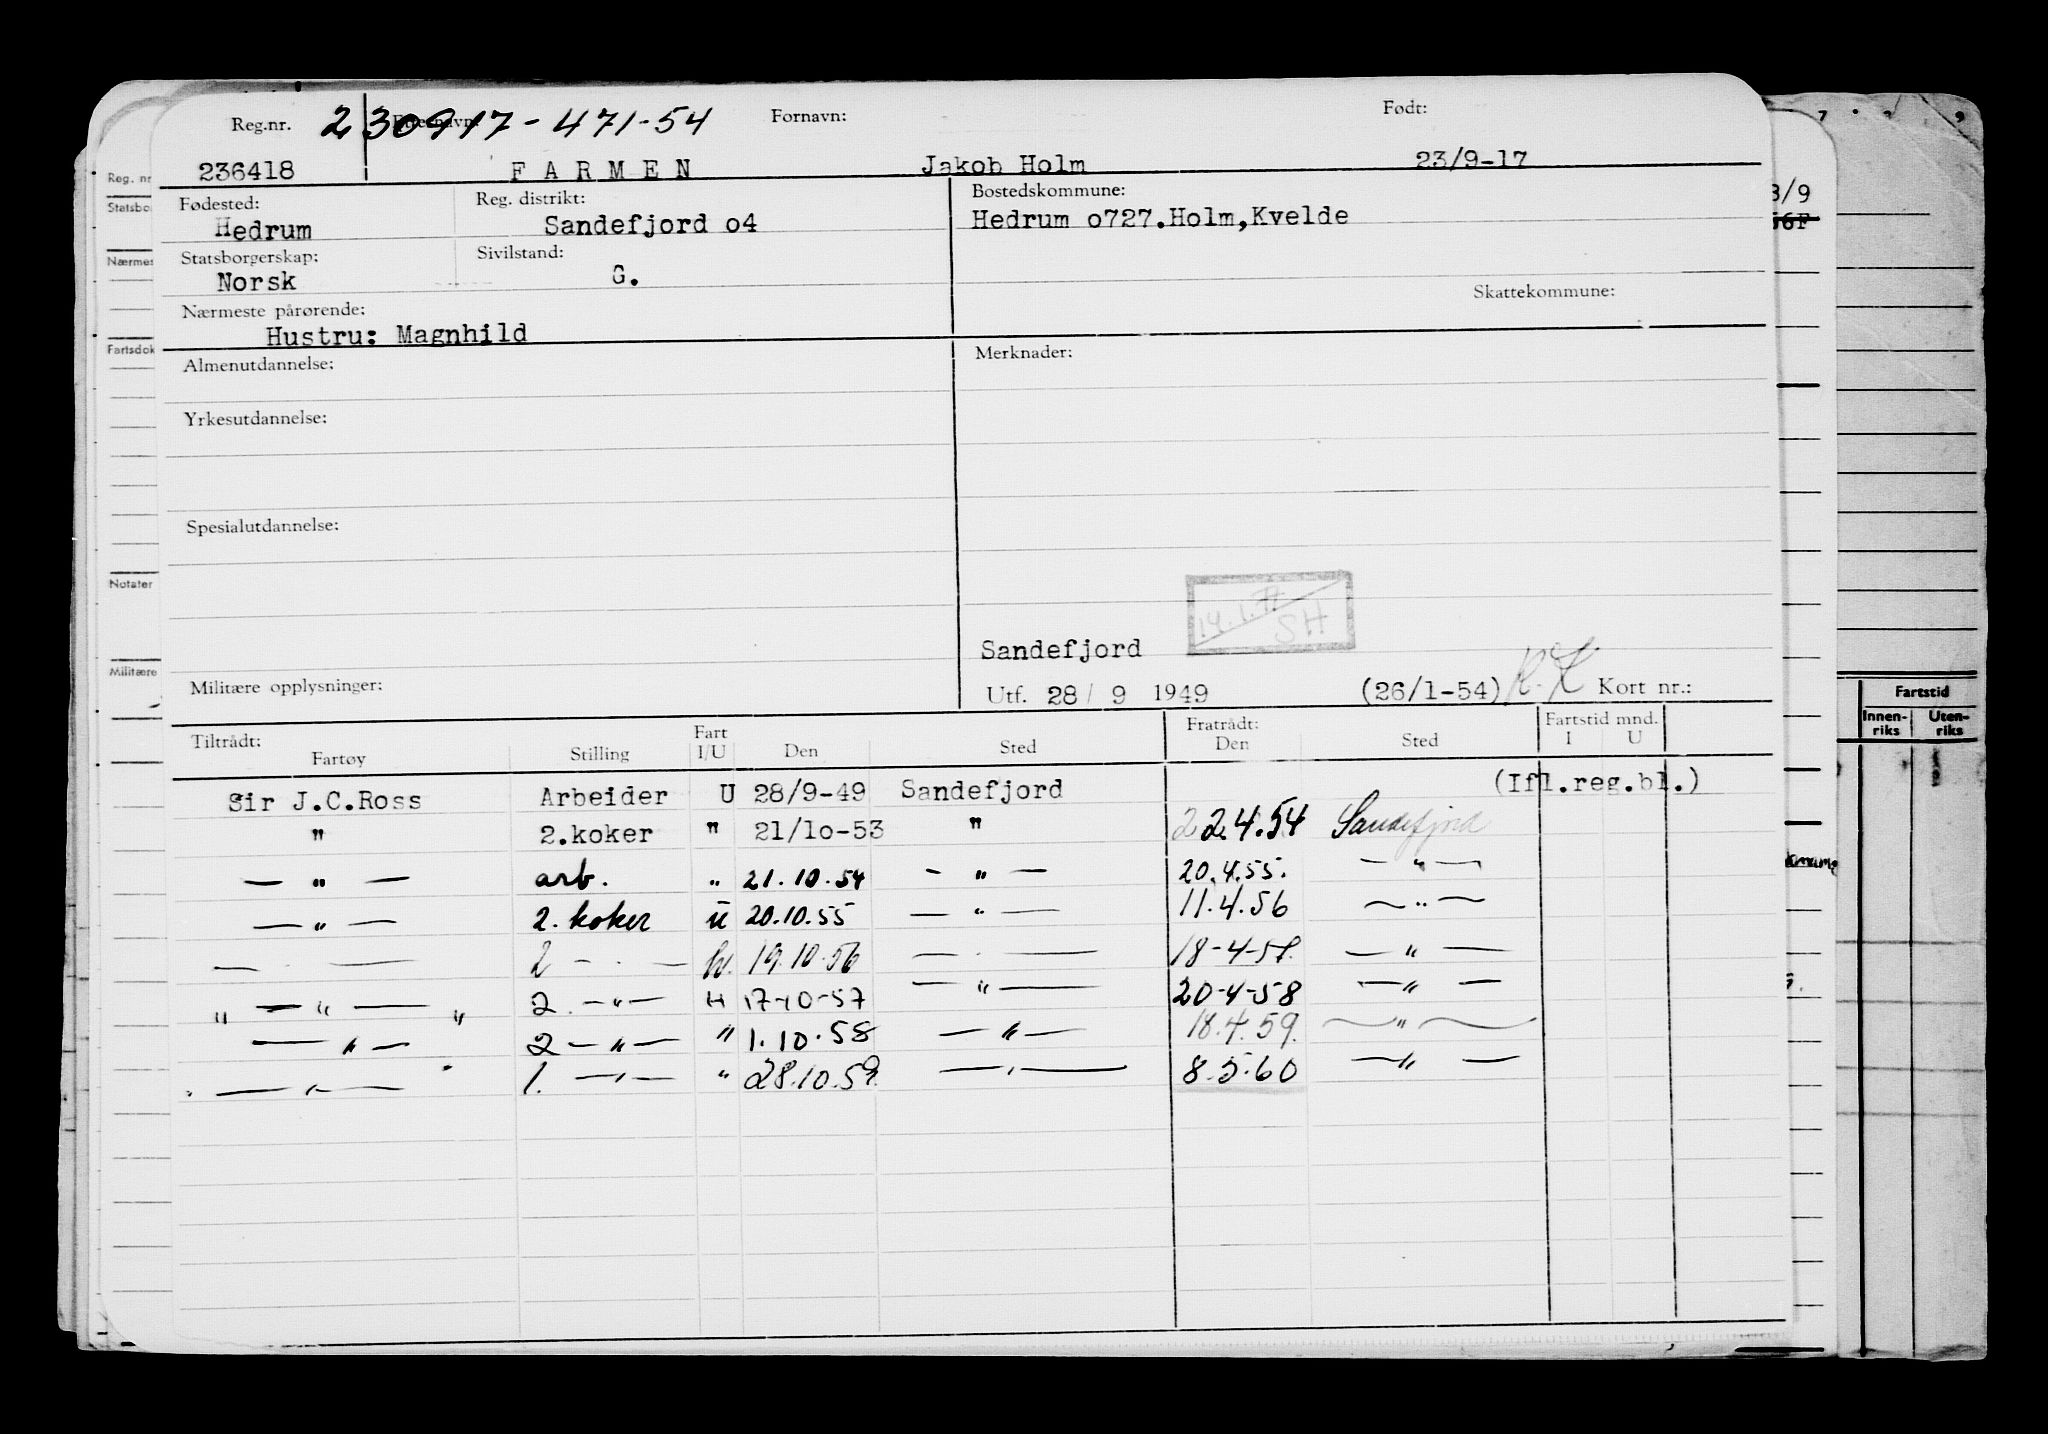 Reg.nr. 230917-471-54 Etternavn: Fornavn: Født:
236418 F A R M E N Jakob Holm 23/9-17
Fødested: Reg. distrikt: Bostedskommune:
Hedrum Sandefjord o4 Hedrum o727.Holm,Kvelde
Statsborgerskap: Sivilstand:
Norsk G.
Skattekommune:
Nærmeste pårørende:
Hustru: Magnhild
Almenutdannelse: Merknader:
Yrkesutdannelse:
Spesialutdannelse:
14.1.71
SH
Sandefjord
Militære opplysninger: Utf. 28/ 9 1949 (26/1-54) Kort nr.:
Tiltrådt: Fart Fratrådt: Fartstid mnd.
Fartøy Stilling I/U Den Sted Den Sted I U
Sir J.C.Ross Arbeider U 28/9-49 Sandefjord (Ifl.reg.bl.)
" 2.koker " 21/lo-53 " 22.4.54 Sandefjord
— " — arb. " 21.10.54 — " — 20.4.55. — " —
— " — 2. koker u 20.10.55 — " — 11.4.56 — " —
— " — 2 — " — 19.10.56 — " — 18-4-57. — " —
" — " — " 2. — " — 17-10-57 — " — 20-4-58 — " —
— " — 2 — " — " 1.10.58 — " — 18.4.59. — " —
" — " — " 1. — " — " 28.10.59. — " — 8.5.60 — " —
Reg. nr
Statsbo
Nærmes
Fartsdok
Notater
Militære
3/9
56F
Fartstid
Innen-riks Uten-riks